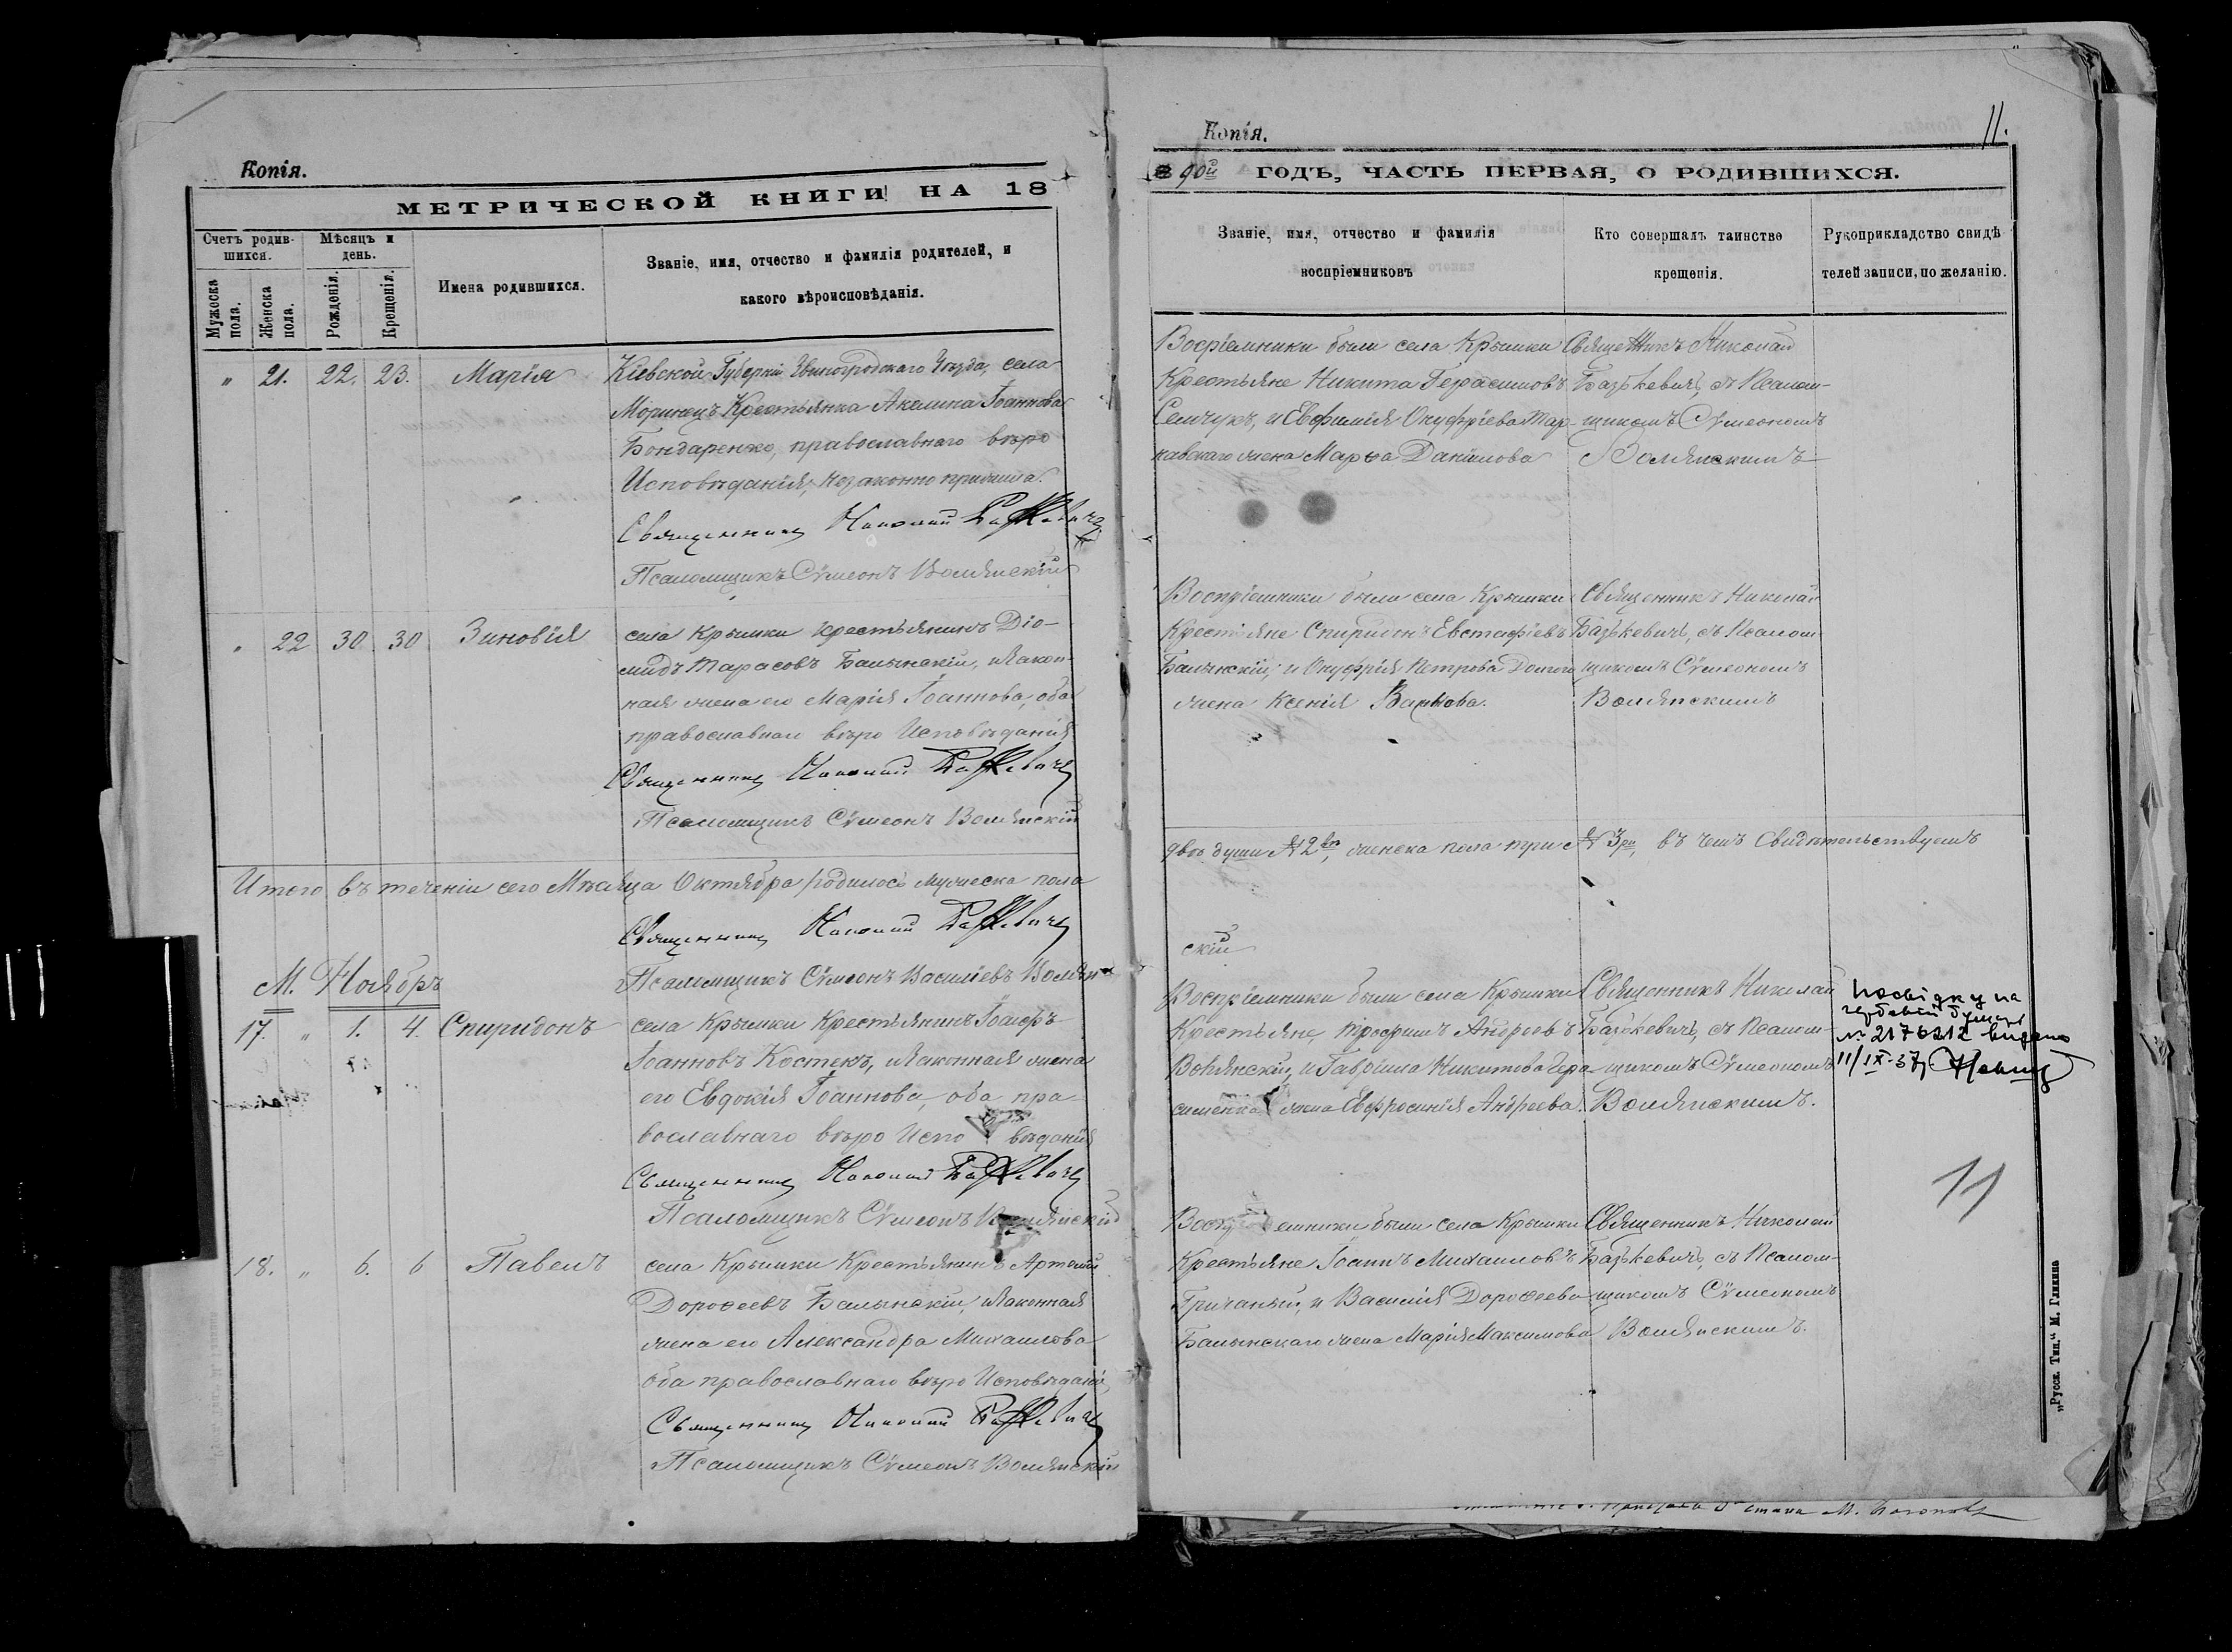 Копія.
МЕТРИЧЕСКОЙ КНИГИ НА 18
Счетъ родив-
шихся.
Мѣсяцъ и
день.
Мужеска
пола.
Женска
пола.
Рожденія.
Крещенія.
Имена родившихся.
Званіе, имя, отчество и фамилія родителей, и
какого вѣроисповѣданія.
" 21. 22. 23. Марія
Кіевской Губерніи Звиногродскаго Уѣзда, села
Моринецъ Крестьянка Акилина Іоаннова
Бондаренко, православнаго вѣро
Исповѣданія, незаконно прижила.
Священникъ Николай Базькевичъ
Псаломщикъ Сѵмеонъ Волянскій
" 22 30. 30 Зиновія
села Крымки крестьянинъ Діо-
мидъ Тарасовъ Балынскій, и Закон-
ная жена его Марія Іоаннова, оба
православнаго вѣро Исповѣданія
Священникъ Николай Базькевичъ
Псаломщикъ Сѵмеонъ Волянскій
Итого въ теченіи сего Мѣсяца Октября родилось мужеска пола
Священникъ Николай Базькевичъ
Псаломщикъ Сѵмеонъ Василіевъ Волян-
М. Ноябрь
17. " 1. 4. Спиридонъ
села Крымки Крестьянинъ
Іоанновъ Костекъ, и Законная жена
его Евдокія Іоаннова, оба пра
вославнаго вѣро Испо вѣданія
Священникъ Николай Базькевичъ
Псаломщикъ Сѵмеонъ Волянскій
18. " 6. 6 Павелъ
села Крымки Крестьянинъ Артемій
Дорофеевъ Балынскій, и Законная
жена его Александра Михаилова
оба православнаго вѣро Исповѣданія,
Священникъ Николай Базькевичъ
Псаломщикъ Сѵмеонъ Волянскій
Копія.
11.
90й ГОДЪ, ЧАСТЬ ПЕРВАЯ, О РОДИВШИХСЯ.
Званіе, имя, отчество и фамилія
воспріемниковъ
Кто совершалъ таинство
крещенія.
Рукоприкладство свидѣ
телей записи, по желанію.
Воспріемники были села Крымки
Крестьяне Никита Герасимовъ
Семчукъ, и Евфимія Онуфріева Тар-
навскаго жена Марфа Данілова
Священникъ Николай
Базькевичъ, съ Псалом-
щикомъ Сѵмеономъ
Волянскимъ
Воспріемники были села Крымки
Крестьяне Спиридонъ Евстафіевъ
Балынскій, и Онуфрія Петрова
жена Ксенія
Священникъ Николай
Базькевичъ, съ Псалом
щикомъ Сѵмеономъ
Волянскимъ
двѣ души № 2, женска пола три № 3, въ чемъ Свидѣтельствуемъ
скій
Воспріемники были села Крымки
Крестьяне, Трофимъ Андреевъ
Волянскій, и Гавріила Никитова Гера-
сименка жена Евфросинія Андреева.
Священникъ Николай
Базькевичъ, съ Псалом-
щикомъ Сѵмеономъ
Волянскимъ.
посвідку на
гербовій бумазі
№ 2176212 видано
11/IX-37р.
11
Воспріемники были села Крымки
Крестьяне Іоаннъ Михаиловъ
Гричаный, и Василія Дорофеева
Балынскаго жена Марія Максимова
Священникъ Николай
Базькевичъ, съ Псалом-
щикомъ Сѵмеономъ
Волянскимъ.
„Русск. Тип." М. Ганкина